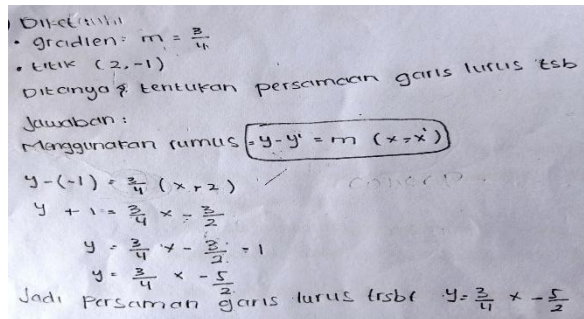 Diketahui
• gradien: m = 3/4
• titik (2,-1)
Ditanya : tentukan persamaan garis lurus tsb
Jawaban :
Menggunakan rumus = y-y' = m (x-x')
y-(-1) = 3/4 (x-2)
y + 1 = 3/4 x - 3/2
y = 3/4 x - 3/2 - 1
y = 3/4 x - 5/2
Jadi persaman garis lurus trsbt y = 3/4 x - 5/2